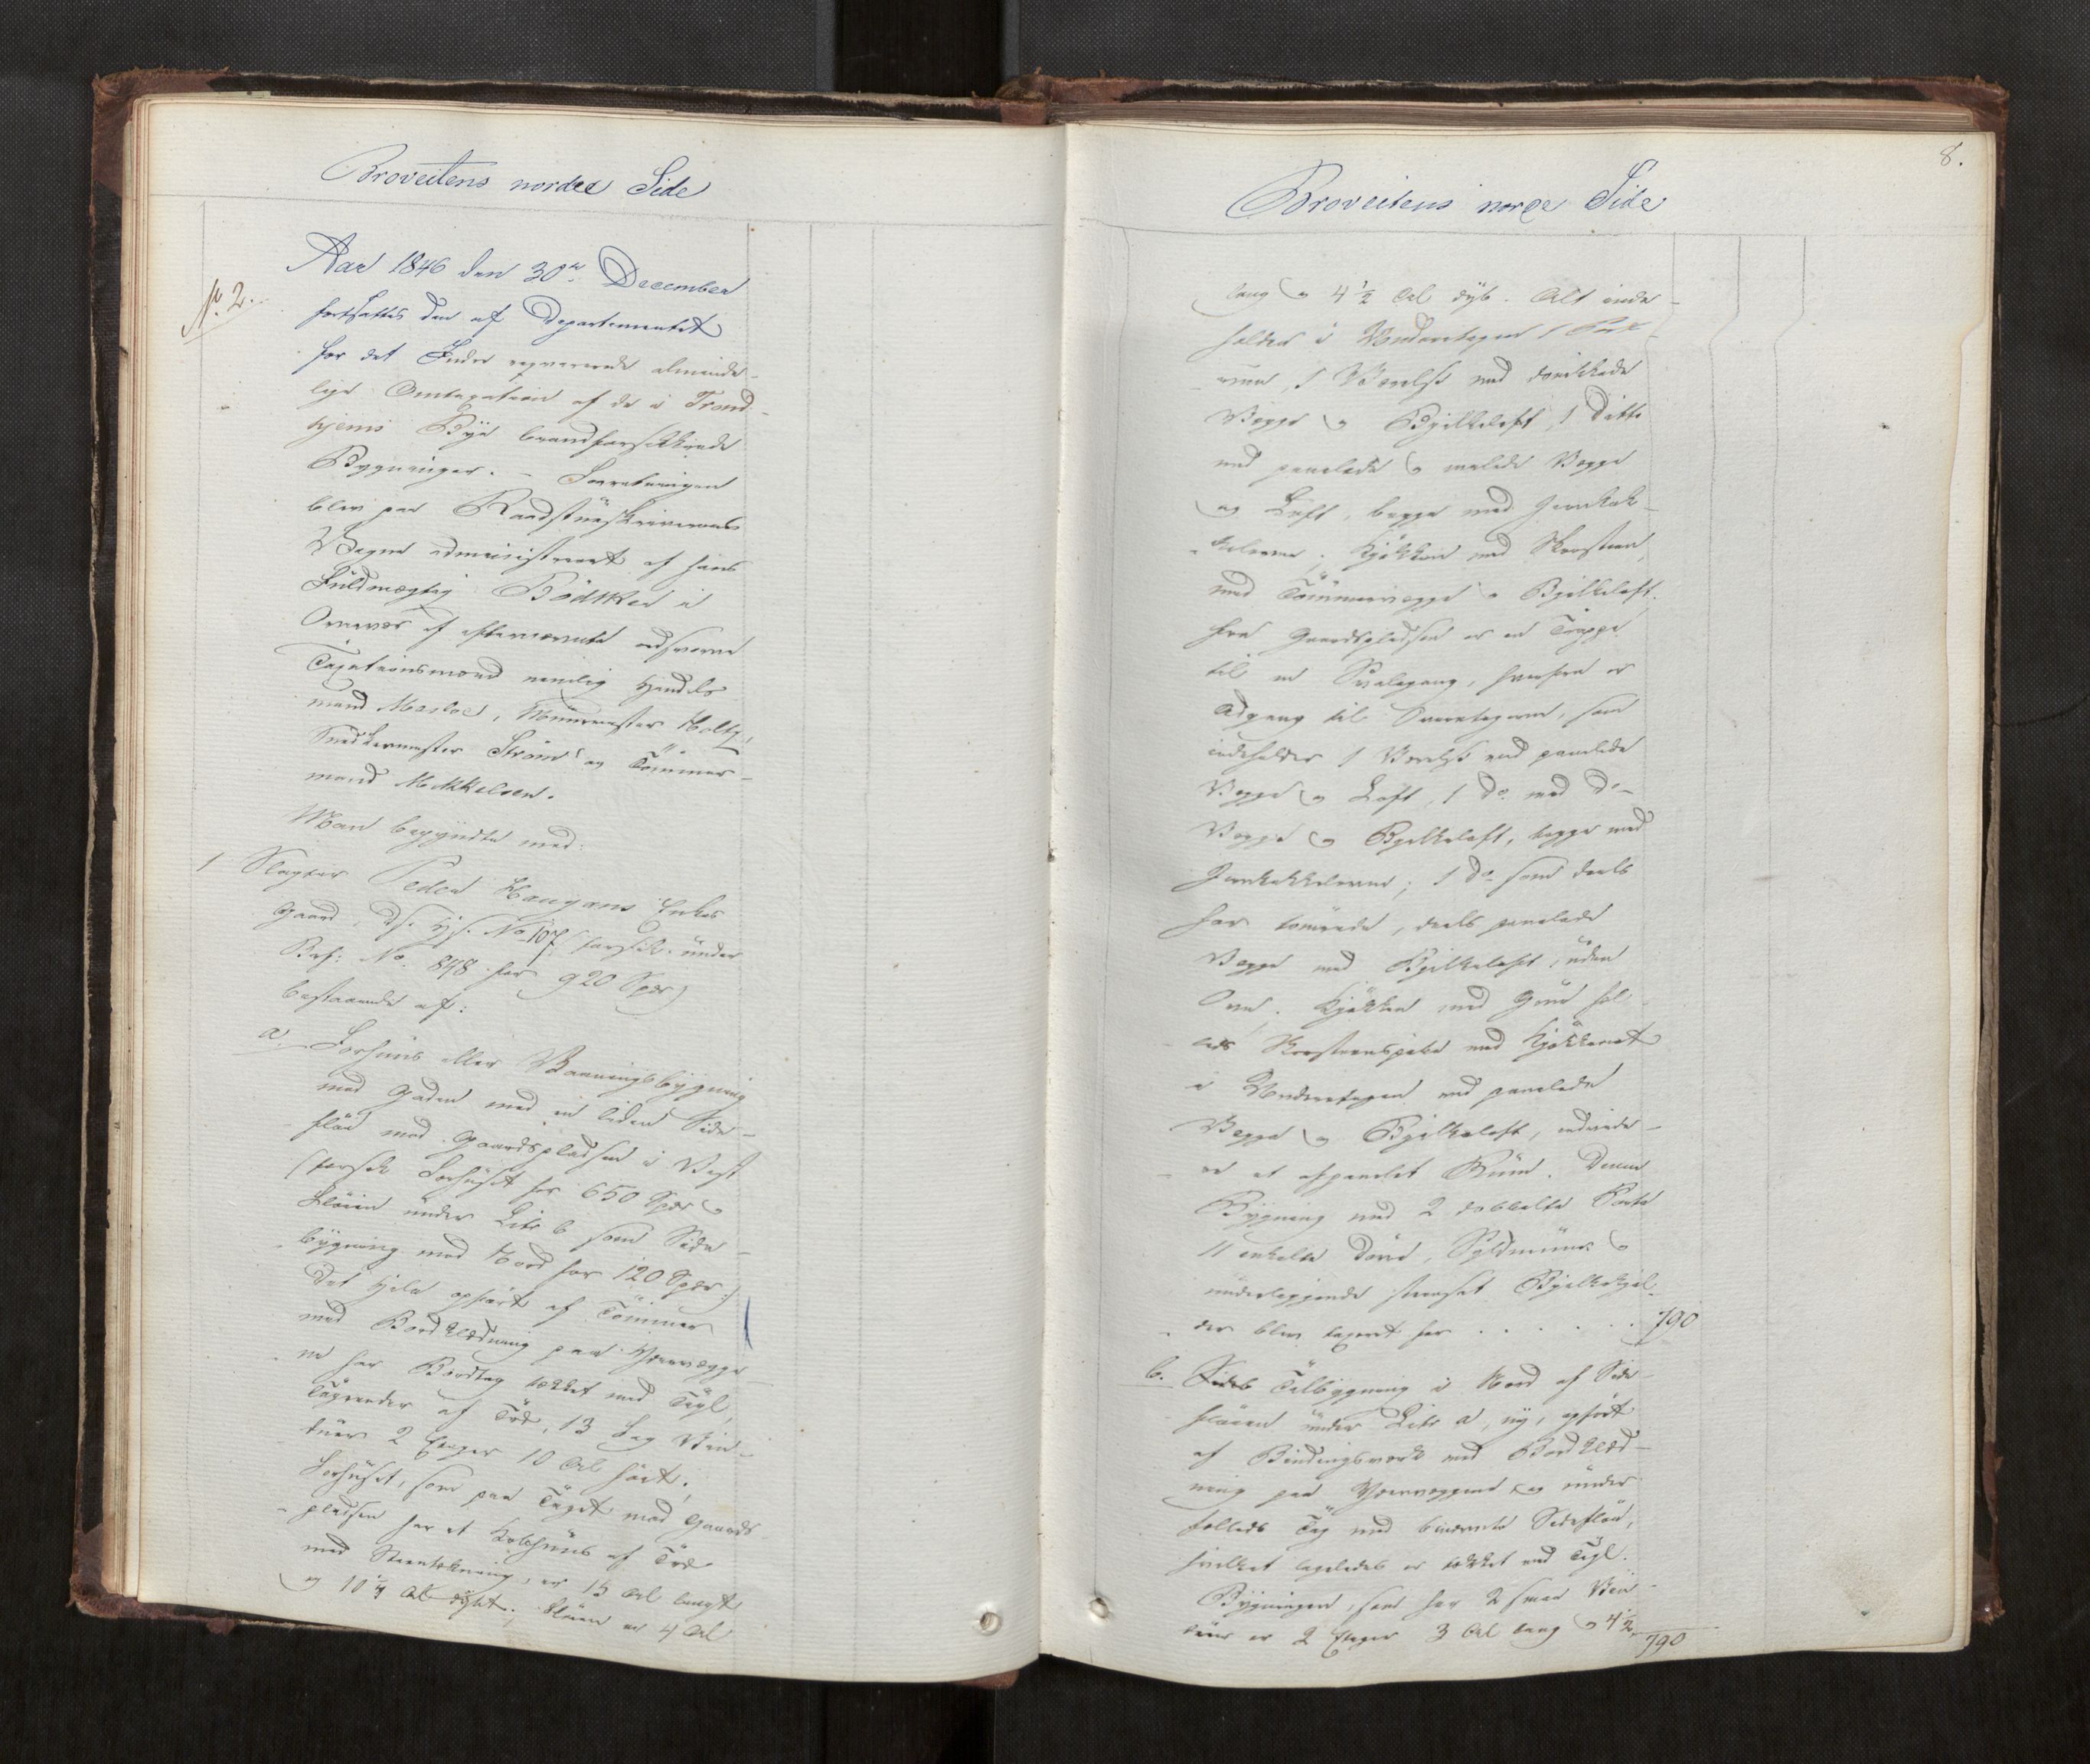 Broveitens nordre Side
No. 2.
Aar 1846 den 30te December
fortsattes den af Departementet
for det Indre reqvirerede alminde-
lige Omtaxation af de i Trond-
hjems Bye brandforsikkrede
Bygninger. - Forretningen
blev paa Raadstueskriverens
Vegne administreret af hans
Fuldmægtig Bödtker i
Overvær af efternævnte edsvorne
Taxationsmænd nemlig Handels-
mand , Muurmester Holtz,
Snedkermester Ström og Tömmer-
mand Mikkelsen.
Man begyndte med:
1 Slagter Peder Haugans Enkes
Gaard, No 107 (forsik. under
Brf: No. 848 for 920 Spdr)
bestaaende af:
a. Forhuus eller Vaaningsbygning
mod Gaden med en liden Side-
flöi mod Gaardspladsen i Vest
(forsik Forhuset for 650 Spdr og
Flöien under Litr b som Side-
bygning mod Nord for 120 Spdr:)
Det hele opfört af Tömmer
med Bordklædning paa Ydervægge-
ne har Bordtag tækket med Tegl,
Tagrender af Træ, 13 Fag Vin-
duer 2 Etager 10 Al höit.
Forhuset, som paa Taget mod Gaards-
pladsen har et Kobhuus af Træ
med Steentækning, er 15 Al langt
og 10 1/4 Al dybt. Flöien er 4 Al
8.
Broveitens nordre Side
lang og 4 1/2 Al dyb. Alt inde-
holder i Underetagen 1
, 1 Værelse med
Vægge og Bjelkeloft, 1 Ditto
med panelede og malede Vægge
og Loft, begge med Jernkak-
kelovne; Kjökken med Skorsteen,
med Tömmervægge og Bjelkeloft.
Fra Gaardspladsen er en Trappe
til en Svalegang, hvorfra er
Adgang til Overetagen, som
indeholder 1 Værelse med panelede
Vægge og Loft, 1 Do med Do
Vægge og Bjelkeloft, begge med
Jernkakkelovne; 1 Do som deels
har , deels panelede
Vægge med Bjelkeloft, uden
Ovn. Kjökken med Gruе fæl-
leds Skorsteenspibe med Kjökkenet
i Underetagen med panelede
Vægge og Bjelkeloft, endvide-
re et afpanelet Rum. Denne
Bygning med 2 dobbelte Porte
11 enkelte Döre, Syldmuur og
underliggende steensat Bjelkekjel-
der blev taxeret for . . . . . . 790
b. Tilbygning i Nord af Side-
flöien under Litr a, ny, opfört
af Bindingsverk med Bordklæd-
ning paa Ydervæggene og under
fælleds Tag med bemeldte Sideflöi,
hvilket ligeledes er tækket med Tegl.
Bygningen, som har 2 smaa Vin-
duer er 2 Etager 3 Al lang og 4 1/2
790